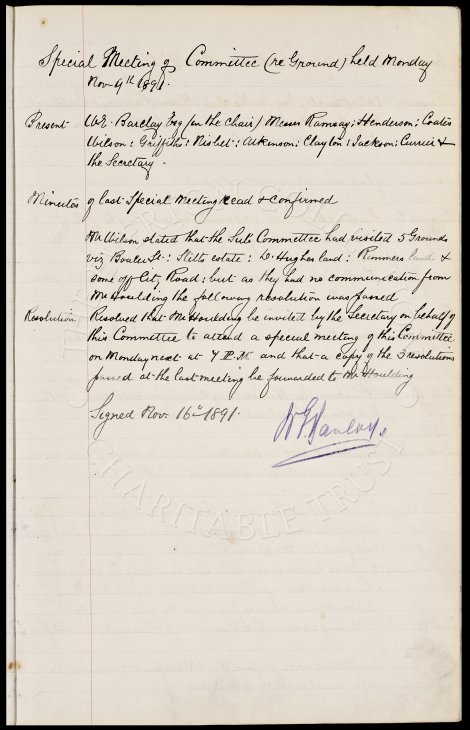 Special Meeting of Committee (re Ground) held Monday
Nov 9th 1891.
Present W.E. Barclay Esq (in the Chair) Messrs Ramsay; Henderson; Coates
Wilson: Griffiths: Nisbet: Atkinson; Clayton: Jackson; Currier &
the Secretary.
Minutes of last Special Meeting read & confirmed
Mr Wilson stated that the Sub Committee had visited 5 Grounds
viz Boaler St.: Stitts estate: D. Hughes land: Rimmers land &
some off City Road; but as they had no communication from
Mr Houlding the following resolution was passed
Resolution Resolved that Mr Houlding be invited by the Secretary on behalf of
this Committee to attend a special meeting of this Committee
on Monday next at 7 P.M. and that a copy of the 3 resolutions
passed at the last meeting be forwarded to Mr Houlding
Signed Nov 16th 1891.
CHARITABLE TRUST